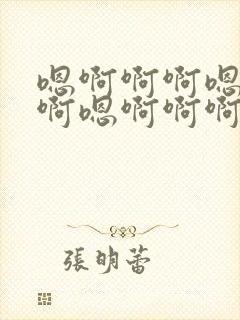 嗯啊啊啊嗯
啊嗯啊啊啊
張明蕾